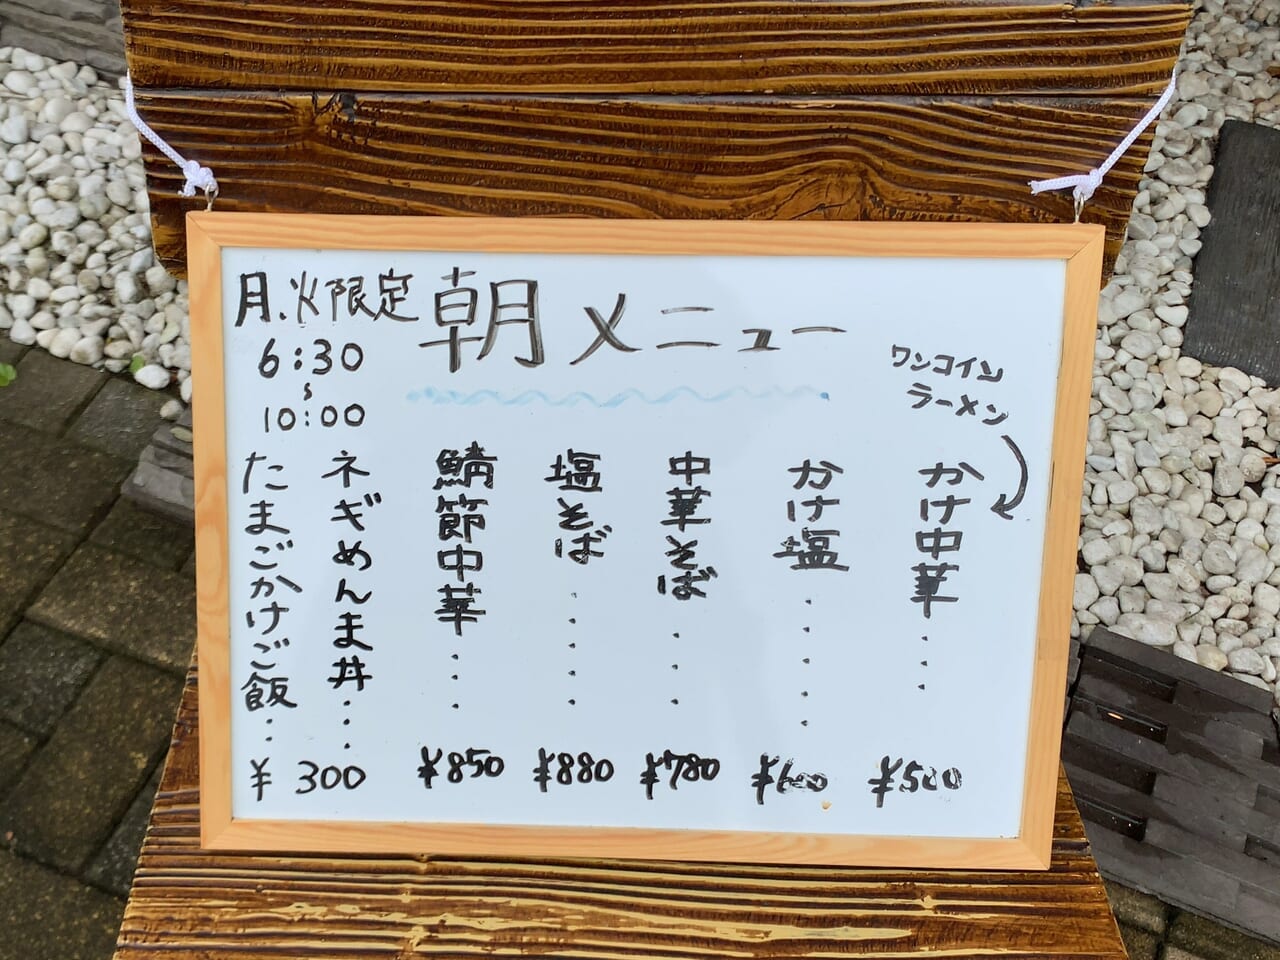 月、火限定
6:30
~
10:00
朝メニュー
ワンコイン
ラーメン
かけ中華・・・¥500
かけ塩・・・・・¥600
中華そば・・・¥780
塩そば・・・・・¥880
鯖節中華・・・¥850
ネギめんま丼・・・
たまごかけご飯・・・
¥300